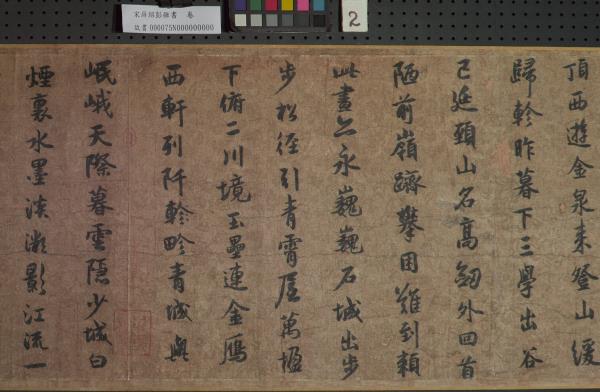 宋薛紹彭雜書 卷
故書000075N000000000
2
頂西遊金泉来登山緩
歸軫昨暮下三學出谷
已延頸山名高劒外回首
陋前嶺躋攀困難到賴
此晝亦永巍巍石城出步
步松徑引青霄屋萬楹
下俯二川境玉壘連金鴈
西軒列阡軫畛青城與
岷峨天際暮雲隱少城白
煙裏水墨淡影江流一